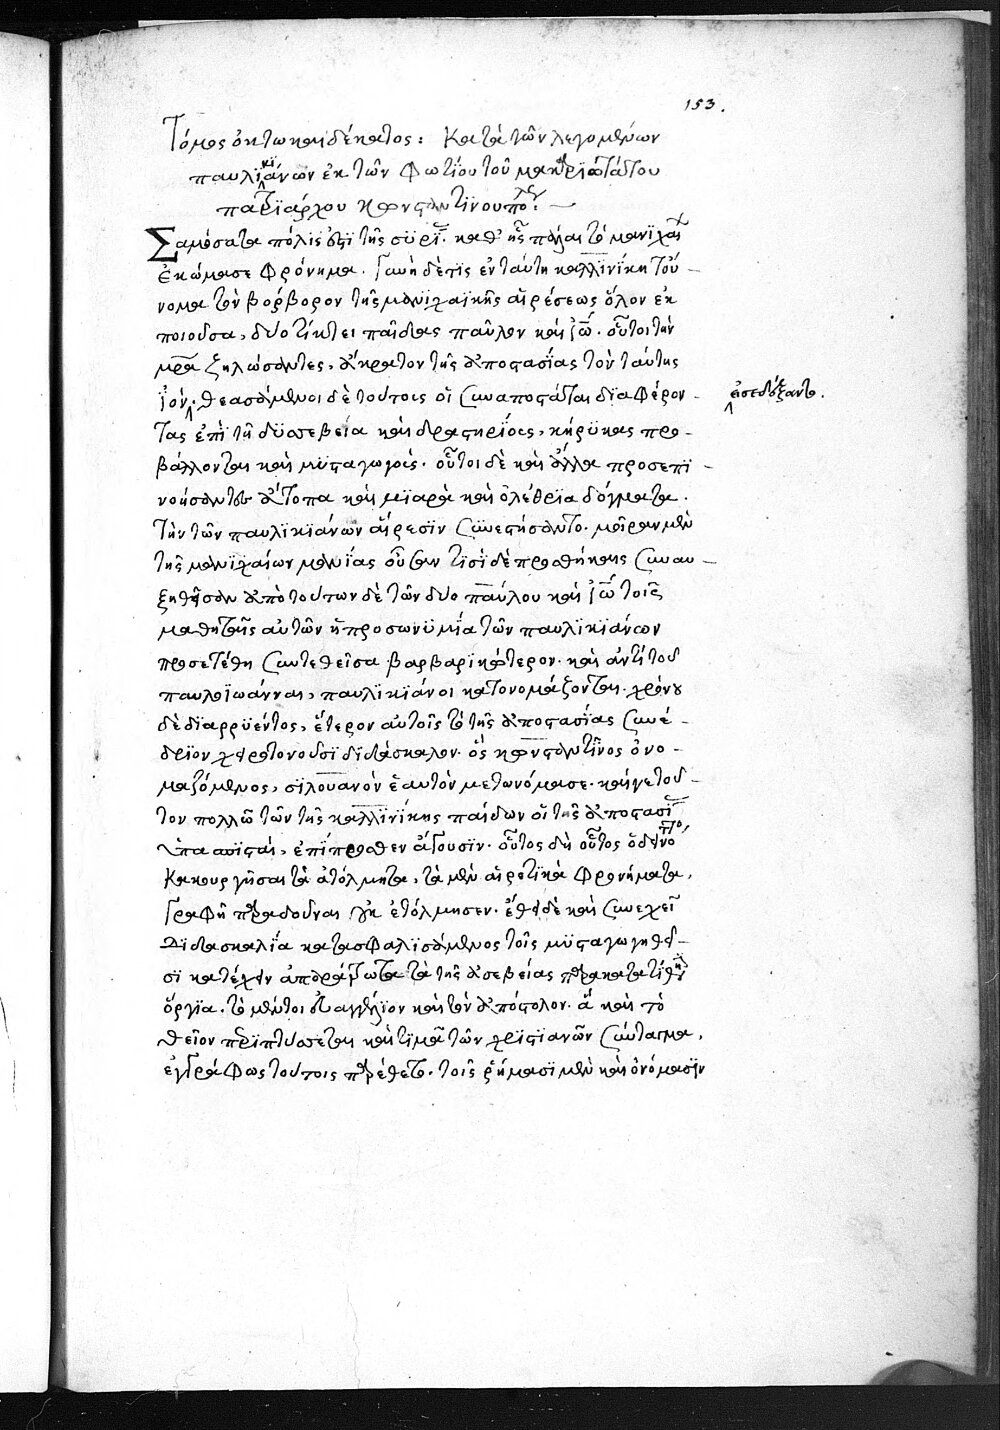 153.
Τόμος ὀκτωκαιδέκατος: Κατὰ τῶν λεγομένων
παυλικιάνων ἐκ τῶν Φωτίου τοῦ μακαριωτάτου
πατριάρχου κωνσταντίνουπόλεως:
Σαμόσατα πόλις ἐστὶ τῆς συρί. καθ' ἧς πάλαι τὸ μανιχαϊ
ἐκώμασε φρόνημα. Γυνὴ δέ τις ἐν ταύτη καλλινίκη τοὔ-
νομα τὸν βόρβορον τῆς μανιχαϊκῆς αἱρέσεως ὅλον ἐκ
ποιοῦσα, δύο τίκτει παῖδας παῦλον καὶ ἰω. οὗτοι τὴν
μρα ζηλώσαντες, ἄκρατον τῆς ἀποστασίας τὸν ταύτης
ἰόν. θεασάμενοι δὲ τούτοις οἱ συναποστάται διαφέρον-
εἰσεδέξαντο.
τας ἐπὶ τῆ δυσεβεία καὶ δραστηρίοις, κήρυκας προ-
βάλλονται καὶ μυσταγωγοὺς. οὗτοι δὲ καὶ ἄλλα προσεπι-
νοήσαντες ἄτοπα καὶ μιαρὰ καὶ ὀλέθρια δόγματα.
τὴν τῶν παυλικιάνων αἵρεσιν συνεστήσαντο. μοῖραν μὲν
τῆς μανιχαίων μανίας οὖσαν τισὶ δὲ προσθήκαις συναυ-
ξηθεῖσαν ἀπὸ τούτων δὲ τῶν δύο παύλου καὶ ἰω τοῖς
μαθηταῖς αὐτῶν ἡ προσωνυμία τῶν παυλικιάνων
προσετέθη συντεθεῖσα βαρβαρικώτερον. καὶ ἀντὶ τοῦ
παυλοϊωάνναι, παυλικιάνοι κατονομάζονται. χρόνου
δὲ διαρρυέντος, ἕτερον αὐτοῖς τὸ τῆς ἀποστασίας συνέ-
δριον χειροτονοῦσι διδάσκαλον. ὃς κωνσταντῖνος ὀνο-
μαζόμενος, σιλουανὸν ἑαυτὸν μετωνόμασε. καί γε τοῦ-
τον πολλῶ τῶν τῆς καλλινίκης παίδων οἱ τῆς ἀποστασί
ἐπίπροσθεν ἄγουσιν. οὗτος δὴ οὗτος ὁ δεινὸ
κακουργῆσαι τὰ ἀτόλμητα, τὰ μὲν αἱρετικὰ φρονήματα,
Γραφῆ παραδοῦναι οὐκ ἐτόλμησεν. ἔθει δὲ καὶ συνεχεῖ
διδασκαλία κατασφαλισάμενος τοῖς μυσταγωγηθεῖ-
σι κατέχειν ἀπαράτρωτα τὰ τῆς ἀσεβείας παρακατατίθη
ὄργια. τὸ μέντοι εὐαγγέλιον καὶ τὸν ἀπόστολον. ἃ καὶ τὸ
θεῖον περιπτύσσεται καὶ τιμᾶ τῶν χριστιανῶν σύνταγμα,
ἐγγράφως τούτοις παρέθετο. τοῖς ῥήμασι μὲν καὶ ὀνόμασιν